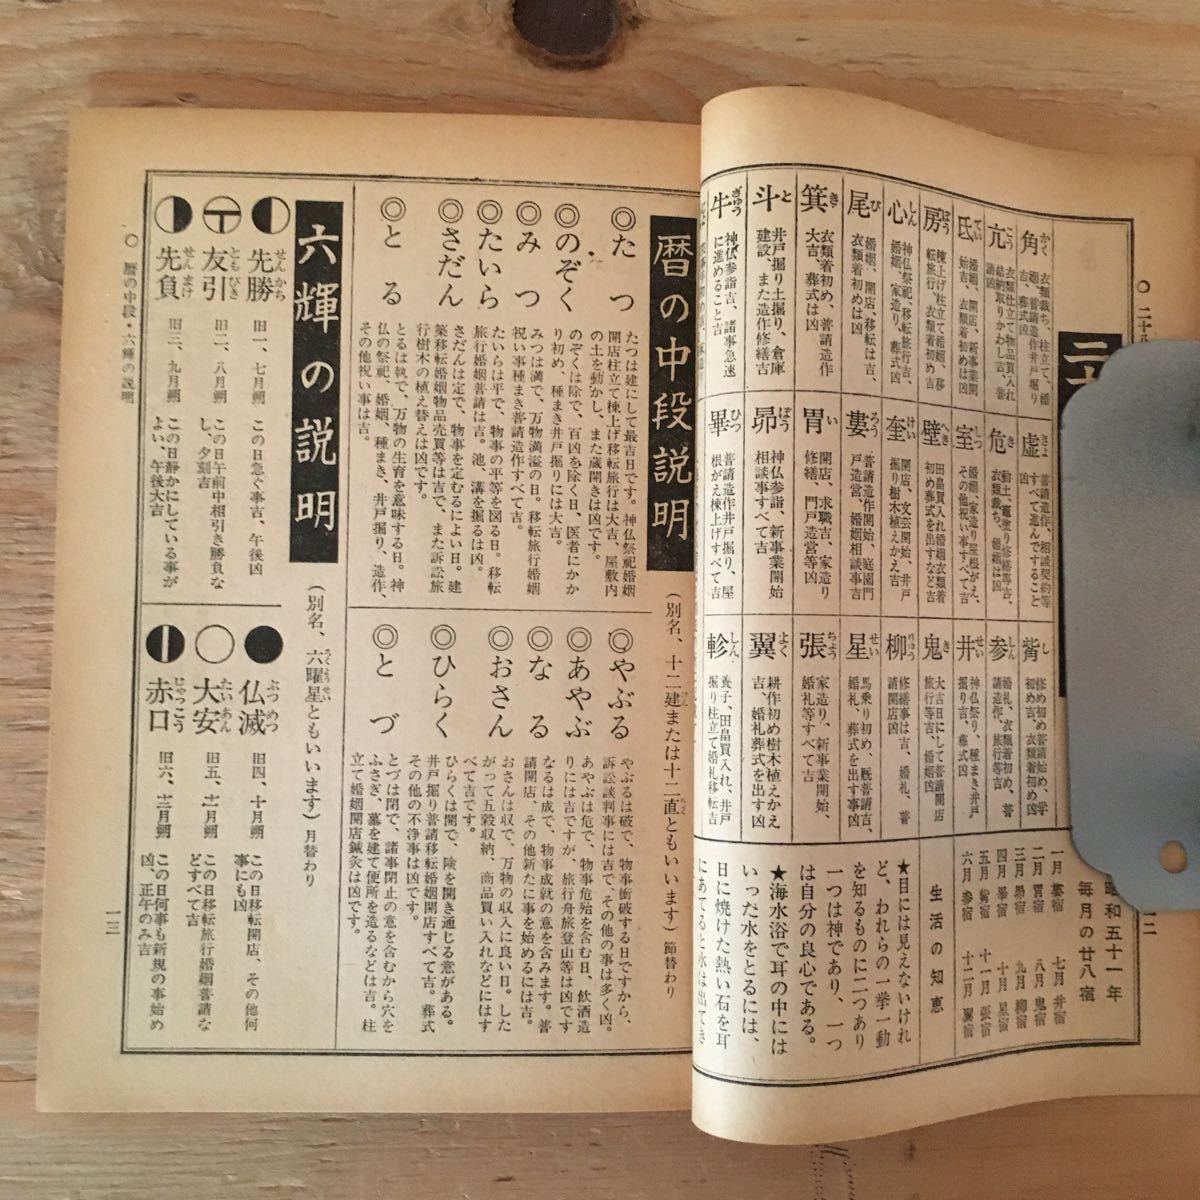 二十
角 かく
衣類裁ち、柱立て、婚
姻、普請造作井戸掘り
吉、葬式凶
亢 こう
衣類仕立て物品買入れ
結納取りかわし吉、普
請凶
氐 てい
婚姻、開店、新事業開
始吉、衣類着初めは凶
房 ぼう
棟上げ柱立て婚姻、移
転旅行、衣類着初め吉
心 しん
神仏祭祀、移転旅行吉、
婚姻、家造り、葬式凶
尾 び
婚姻、開店、移転は吉、
衣類着初めは凶
箕 き
衣類着初め、普請造作
大吉、葬式は凶
斗 と
井戸掘り土掘り、倉庫
建設、また造作修繕吉
牛 ぎゅう
神仏参詣吉、諸事急速
に進めること吉
虚 きょ
普請造作、相談契約等
すべて進んですること
凶
危 き
動土、竃塗り修繕等吉、
衣類裁ち、婚姻は凶
室 しつ
婚姻、家造り屋根がえ、
その他祝い事すべて吉
壁 へき
田畠買入れ婚姻衣類着
初め葬式を出すなど吉
奎 けい
開店、文芸開始、井戸
掘り樹木植えかえ吉
婁 ろう
普請造作開始、庭園門
戸造営、婚姻相談事吉
胃 い
開店、求職吉、家造り
修繕、門戸造営等凶
昴 ぼう
神仏参詣、新事業開始
相談事すべて吉
畢 ひつ
普請造作井戸掘り、屋
根がえ棟上げすべて吉
觜 し
修め初め普請始め、学
初め吉、衣類着初め凶
参 しん
婚礼、衣類着初め、普
請造作、旅行等吉
井 せい
神仏祭り、種まき井戸
掘り吉、葬式凶
鬼 き
大吉日にして普請開店
旅行等吉、婚姻凶
柳 りゅう
修繕事は吉、婚礼、普
請開店凶
星 せい
馬乗り初め、厩普請吉、
婚礼、葬式を出す事凶
張 ちょう
家造り、新事業開始、
婚礼等すべて吉
翼 よく
耕作初め樹木植えかえ
吉、婚礼葬式を出す凶
軫 しん
養子、田畠買入れ、井戸
掘り柱立て婚礼移転吉
昭和五十一年
毎月の廿八宿
一月 婁宿 七月 井宿
二月 胃宿 八月 鬼宿
三月 昴宿 九月 柳宿
四月 畢宿 十月 星宿
五月 觜宿 十一月 張宿
六月 参宿 十二月 翼宿
生活の知恵
★目には見えないけれ
ど、われらの一挙一動
を知るものに二つあり
一つは神であり、一つ
は自分の良心である。
★海水浴で耳の中には
いった水をとるには、
日に焼けた熱い石を耳
にあてると水は出てき
暦の中段説明
（別名、十二建または十二直ともいいます）節替わり
◎たつ
たつは建にして最吉日です。神仏祭祀婚姻
開店柱立て棟上げ移転旅行は大吉、屋敷内
の土を動かし、また蔵開きは凶です。
◎のぞく
のぞくは除で、百凶を除く日、医者にかか
り初め、種まき井戸掘りには大吉。
◎みつ
みつは満で、万物満溢の日。移転旅行婚姻
祝い事種まき普請造作すべて吉。
◎たいら
たいらは平で、物事の平等を図る日。移転
旅行婚姻普請は吉。池、溝を掘るは凶。
◎さだん
さだんは定で、物事を定むるによい日。建
築移転婚姻物品売買等は吉で、また訴訟旅
行樹木の植え替えは凶です。
◎とる
とるは執で、万物の生育を意味する日。神
仏の祭祀、婚姻、種まき、井戸掘り、造作、
その他祝い事は吉。
◎やぶる
やぶるは破で、物事衝破する日ですから、
訴訟談判事には吉で、その他の事は多く凶。
◎あやぶ
あやぶは危で、物事危殆を含む日、飲酒造
りには吉ですが、旅行舟旅登山等は凶です
◎なる
なるは成で、物事成就の意を含みます。普
請開店、その他新たに事を始めるには吉。
◎おさん
おさんは収で、万物の収入に良い日。した
がって五穀収納、商品買い入れなどにはす
べて吉です。
◎ひらく
ひらくは開で、険を開き通じる意がある。
井戸掘り普請移転婚姻開店すべて吉。葬式
その他の不浄事は凶です。
◎とづ
とづは閉で、諸事閉止の意を含むから穴を
ふさぎ、墓を建て便所を造るなどは吉。柱
立て婚姻開店鍼灸は凶です。
六輝の説明
（別名、六曜星ともいいます）月替わり
先勝 せんかち
旧一、七月朔
この日急ぐ事吉、午後凶
友引 ともびき
旧二、八月朔
この日午前中相引き勝負な
し、夕刻吉
先負 せんまけ
旧三、九月朔
この日静かにしている事が
よい、午後大吉
仏滅 ぶつめつ
旧四、十月朔
この日移転開店、その他何
事にも凶
大安 たいあん
旧五、十一月朔
この日移転旅行婚姻普請な
どすべて吉
赤口 じゃっこう
旧六、十二月朔
この日何事も新規の事始め
凶、正午のみ吉
○ 暦の中段・六輝の説明
一三